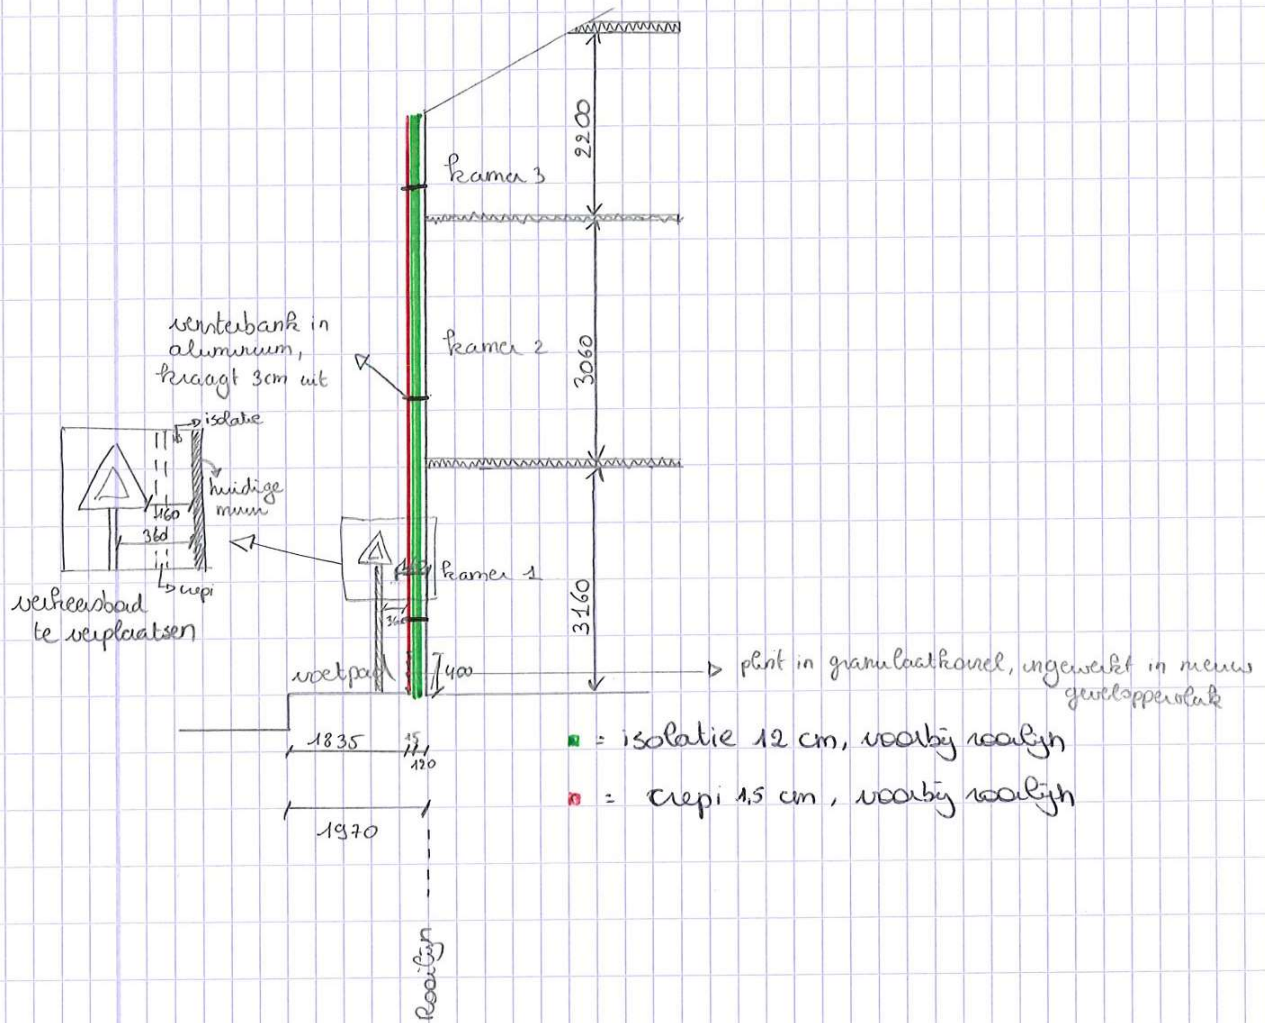 2200
kamer 3
vensterbank in
aluminium,
kraagt 3cm uit
kamer 2
3060
isolatie
huidige
muur
160
360
crepi
verkeersbord
te verplaatsen
kamer 1
3160
voetpad
400
plint in granulaatkorrel, ingewerkt in nieuw
geveloppervlak
1835
15
120
= isolatie 12 cm, voorbij rooilijn
= crepi 1,5 cm, voorbij rooilijn
1970
Rooilijn